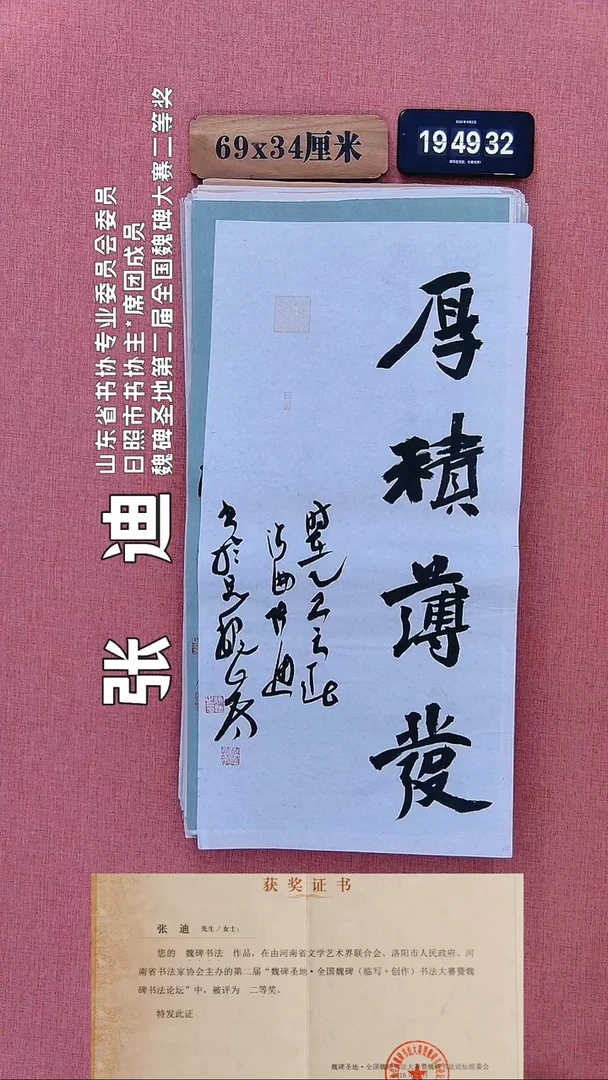 69x34厘米
19 49 32
山东省书协专业委员会委员
日照市书协主*席团成员
魏碑圣地第二届全国魏碑大赛二等奖
张 迪
厚積薄發
获奖证书
张 迪 先生/女士:
您的 魏碑书法 作品，在由河南省文学艺术界联合会、洛阳市人民政府、河
南省书法家协会主办的第二届“魏碑圣地·全国魏碑（临写+创作）书法大赛暨魏
碑书法论坛”中，被评为 二等奖。
特发此证
魏碑圣地·全国魏碑书法大赛暨魏碑书法论坛组委会